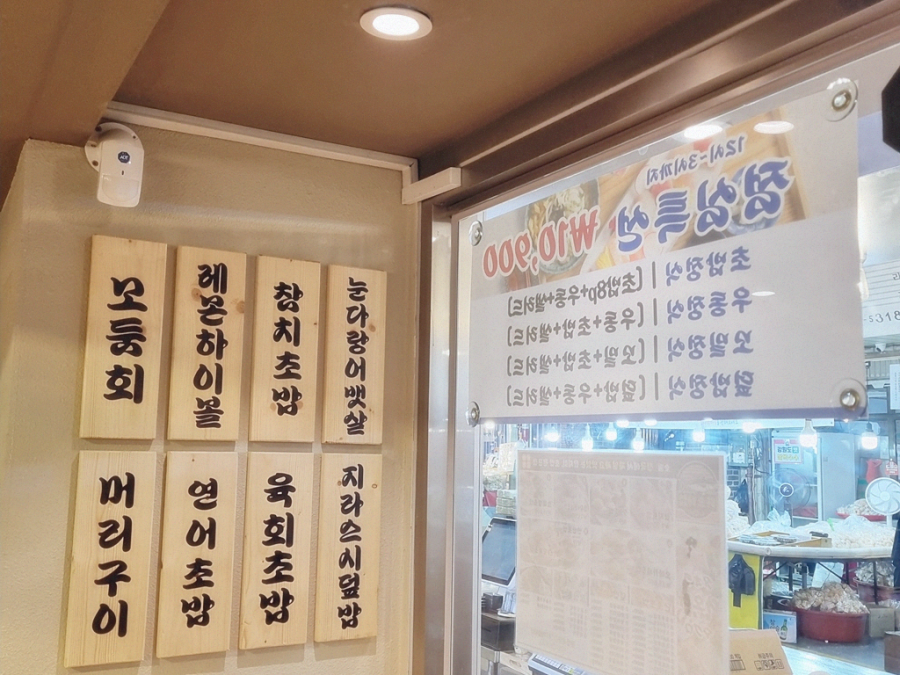 모둠회
레몬하이볼
참치초밥
눈다랑어뱃살
머리구이
연어초밥
육회초밥
지라스시덮밥
12시-3시까지
점심특선 ₩10,900
초밥정식 | (초밥8p+우동+샐러드)
우동정식 | (우동+초밥+샐러드)
모밀정식 | (모밀+초밥+샐러드)
덮밥정식 | (덮밥+우동+샐러드)